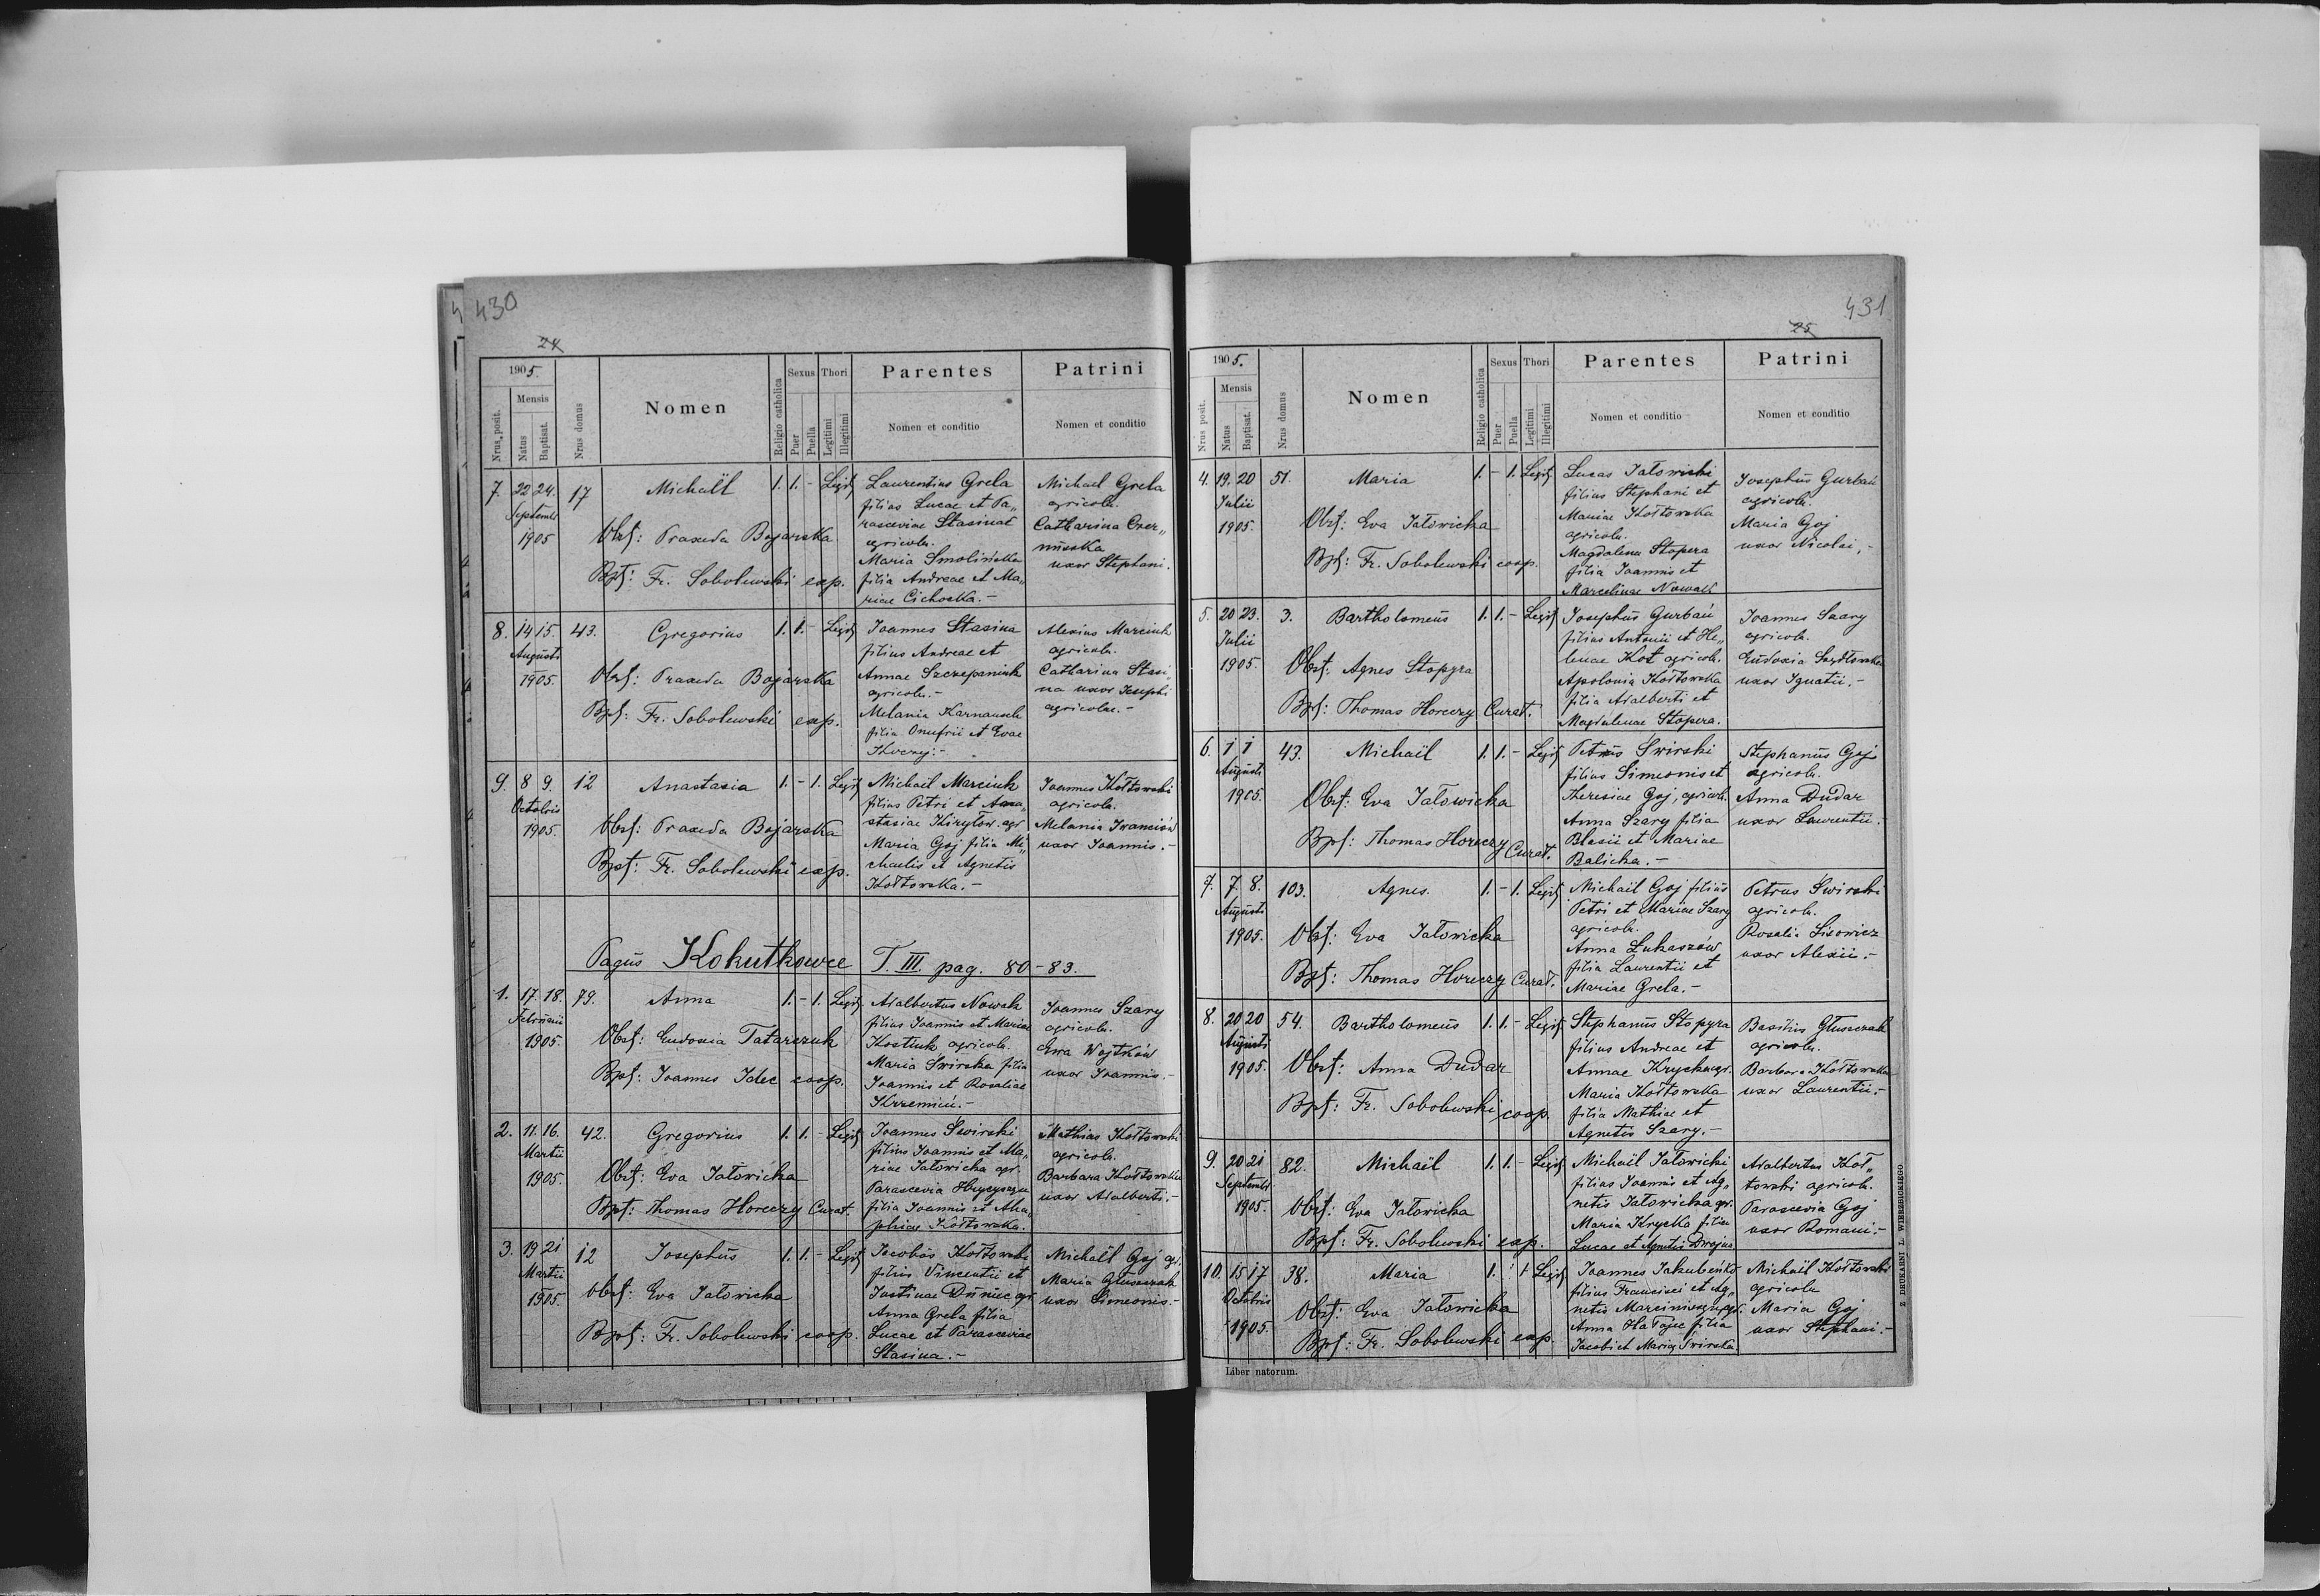 430
24
1905.
Nrus. posit.
Mensis
Natus
Baptisat.
Nrus domus
Nomen
Religio catholica
Sexus
Puer
Puella
Thori
Legitimi
Illegitimi
Parentes
Nomen et conditio
Patrini
Nomen et conditio
7. 22 24. 17 Michaël 1. 1. - Legit
Septembr
1905
Obst: Praxeda Bojarska
Bpt: Fr. Sobolewski exp.
Laurentius Grela
filius Lucae et Pa„
rasceviae Stasinae
agricola.
Maria Smolińska
filia Andreae et Ma„
riae Cichocka.-
Michael Grela
agricola.
Catharina
uxor Stephani.
8. 14 15. 43. Gregorius 1. 1. - Legit
Augusti
1905.
Obst: Praxeda Bojarska
Bpt: Fr. Sobolewski exp.
Joannes Stasina
filius Andreae et
Annae Szczepaniuk
agricola.-
Melania Karnauch
filia Onufrii et Evae
Alexius Marciuk
agricola.
Catharina Stasi
na uxor Josephi
agricolae.-
9. 8 9. 12 Anastasia 1. - 1. Legit
Octobris
1905.
Obst: Praxeda Bojarska
Bpt: Fr. Sobolewski exp.
Michaël Marciuk
filius Petri et Ana„
stasiae Kiryłow. agr
Maria Goj filia Mi„
chaelis et Agnetis
Kołtowska.-
Joannes Kołtowski
agricola.
Melania Iwanciów
uxor Joannis.-
Pagus Kokutkowce T. III. pag. 80-83.
1. 17. 18. 79. Anna 1. - 1. Legit
Februarii
1905.
Obst: Eudoxia Tatarczuk
Bpt: Joannes Idec coop.
Adalbertus Nowak
filius Joannis et Mariae
Kostiuk agricola.
Maria Swirska filia
Joannis et Rosaliae
Krzemień.-
Joannes Szary
agricola.
Ewa Wojtków
uxor Joannis.-
2. 11. 16. 42. Gregorius 1. 1. - Legit
Martii
1905.
Obst: Eva Jałowicka
Bpt: Thomas Horeczy Curat.
Joannes Świrski
filius Joannis et Ma„
riae Jałowicka agr.
Parascevia
filia Joannis et Aga„
phiae Kołtowska.
Mathias Kołtowski
agricola.
Barbara Kołtowska
uxor Adalberti.-
3. 19 21 12 Josephus 1. 1. - Legit
Martii
1905.
Obst: Eva Jałowicka
Bpt: Fr. Sobolewski coop.
Jacobus Kołtowski
filius Vincentii et
Justinae Duniec agr.
Anna Grela filia
Lucae et Parasceviae
Stasina.-
Michaël Goj ag.
Maria Głuszczak
uxor Simeonis.-
431
25
1905.
Nrus posit.
Mensis
Natus
Baptisat.
Nrus domus
Nomen
Religio catholica
Sexus
Puer
Puella
Thori
Legitimi
Illegitimi
Parentes
Nomen et conditio
Patrini
Nomen et conditio
4. 19. 20 51. Maria 1. - 1. Legit
Julii
1905.
Obst: Eva Jałowicka
Bpt: Fr. Sobolewski coop.
Lucas Jałowicki
filius Stephani et
Mariae Kołtowska
agricola.
Magdalena Stopera
filia Joannis et
Marcelinae Nowak
Josephus Gurbań
agricola.
Maria Goj
uxor Nicolai.-
5. 20 23. 3. Bartholomeus 1. 1. - Legit
Julii
1905.
Obst: Agnes Stopyra
Bpt: Thomas Horeczy Curat.
Josephus Gurbań
filius Antonii et He„
lenae Kot agricola.
Apolonia Kołtowska
filia Adalberti et
Magdalenae Stopera.
Joannes Szary
agricola.
Eudoxia
uxor Ignatii.-
6. 1 1 43. Michaël 1. 1. - Legit
Augusti
1905.
Obst: Eva Jałowicka
Bpt: Thomas Horeczy Curat.
Petrus Świrski
filius Simeonis et
Theresiae Goj, agricola.
Anna Szary filia
Blasii et Mariae
Balicka.-
Stephanus Goj
agricola.
Anna Dudar
uxor Laurentii.
7. 7. 8. 103. Agnes. 1. - 1. Legit
Augusti
1905.
Obst: Eva Jałowicka
Bpt: Thomas Horeczy Curat.
Michaël Goj filius
Petri et Mariae Szary
agricola.
Anna Łukaszów
filia Laurentii et
Mariae Grela.-
Petrus Świrski
agricola.
Rosalia Lisowicz
uxor Alexii.-
8. 20 20 54. Bartholomeus 1. 1. - Legit
Augusti
1905.
Obst: Anna Dudar
Bpt: Fr. Sobolewski coop.
Stephanus Stopyra
filius Andreae et
Annae Krycka agr.
Maria Kołtowska
filia Mathiae et
Agnetis Szary.-
Basilius Głuszczak
agricola.
Barbara Kołtowska
uxor Laurentii.-
9. 20 21 82. Michaël 1. 1. - Legit
Septembr.
1905.
Obst: Eva Jałowicka
Bpt: Fr. Sobolewski exp.
Michaël Jałowicki
filius Joannis et Ag„
netis Jałowicka agr.
Maria Krycka filia
Lucae et Agnetis
Adalbertus Koł„
towski agricola.
Parascevia Goj
uxor Romani.-
10. 15 17 38. Maria 1. 1 Legit
Octobris
1905.
Obst: Eva Jałowicka
Bpt: Fr. Sobolewski exp.
Joannes Jakubeńko
filius Francisci et Ag„
netis
Anna filia
Jacobi et Mariae Świrska
Michaël Kołtowski
agricola
Maria Goj
uxor Stephani.-
Liber natorum.
Z DRUKARNI L. WIERZBICKIEGO